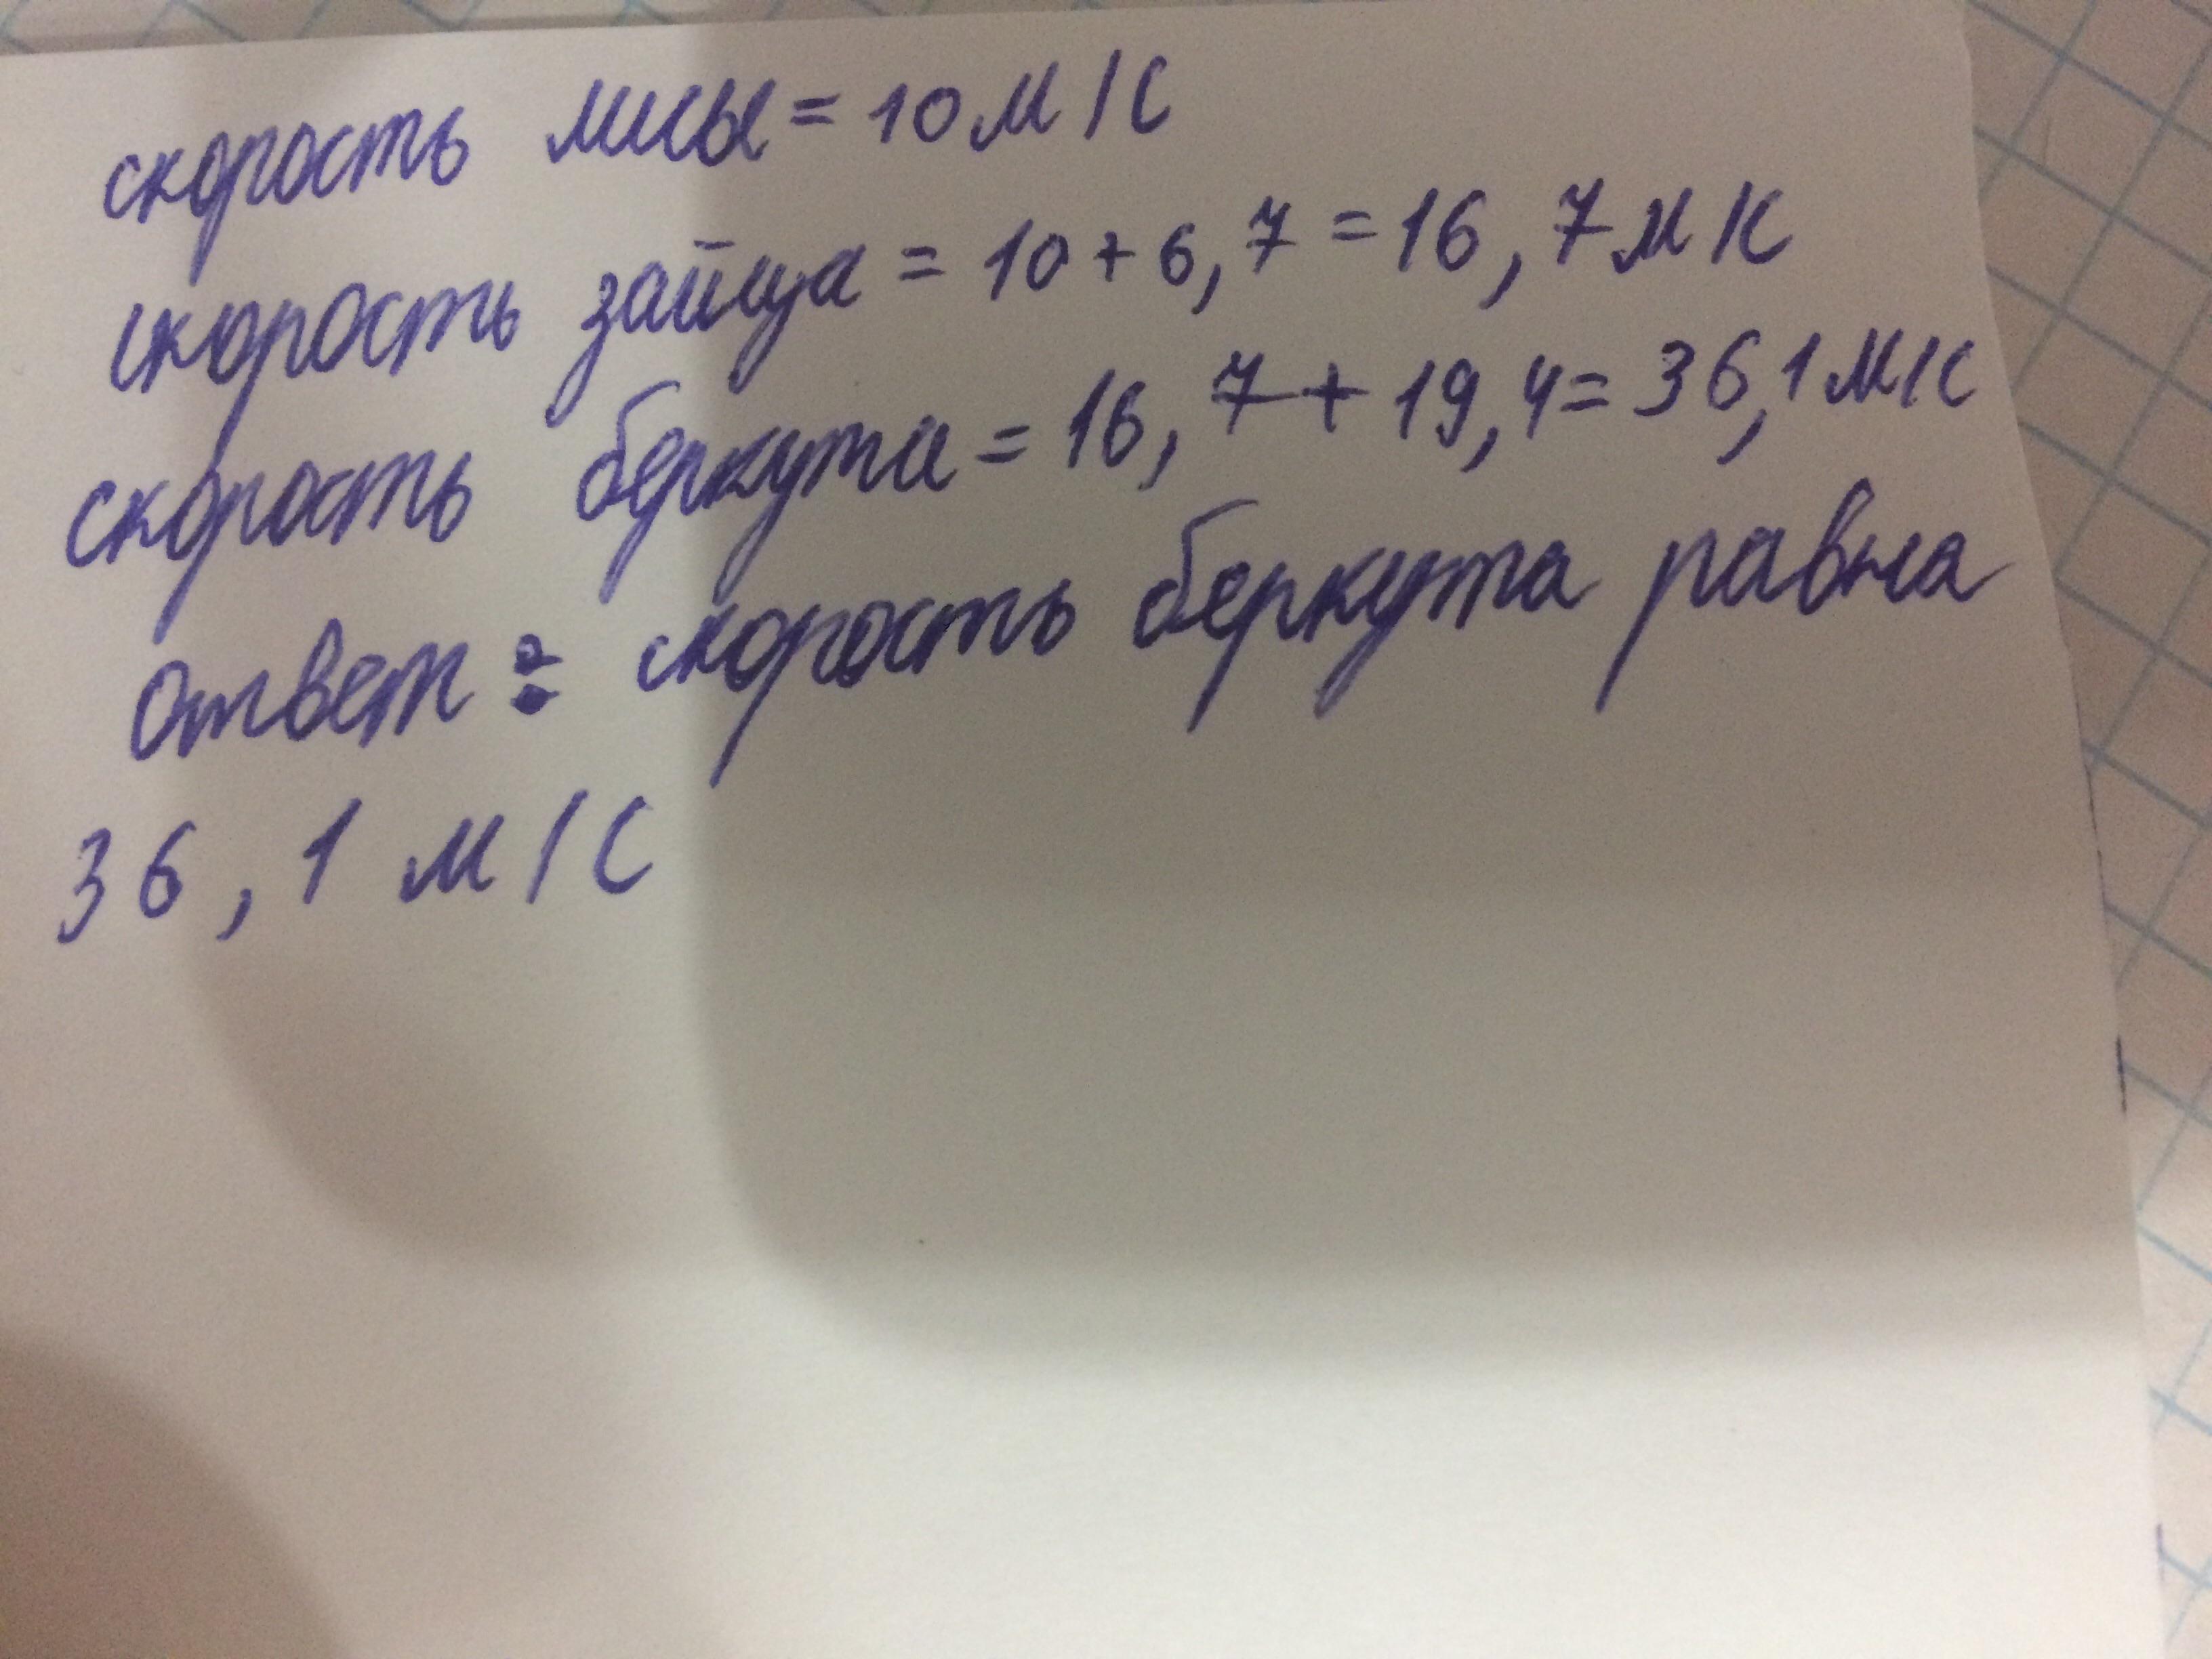 скорость лисы = 10 м/с
скорость зайца = 10 + 6,7 = 16,7 м/с
скорость беркута = 16,7 + 19,4 = 36,1 м/с
ответ: скорость беркута равна
36,1 м/с